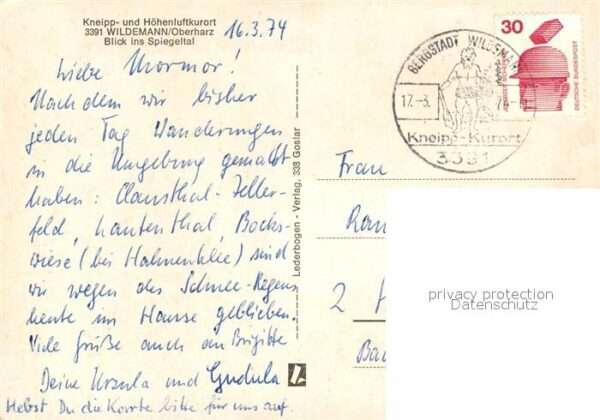 Kneipp- und Höhenluftkurort
3391 WILDEMANN/Oberharz
Blick ins Spiegeltal
16.3.74
Liebe Mormor!
Nachdem wir bisher
jeden Tag Wanderungen
in die Umgebung gemacht
haben: Clausthal-Zeller-
feld, Lautenthal, Bocks-
wiese (bei Hahnenklee) sind
wir wegen des Schnee-Regens
heute im Hause geblieben.
Viele Grüße auch an Brigitte
Deine Ursula und Gudula
Hebst Du die Karte bitte für uns auf.
Lederbogen - Verlag, 338 Goslar
BERGSTADT WILDEMANN
17.-3.
74.-
Kneipp-Kurort
3391
30
DEUTSCHE BUNDESPOST
Frau
2
privacy protection
Datenschutz